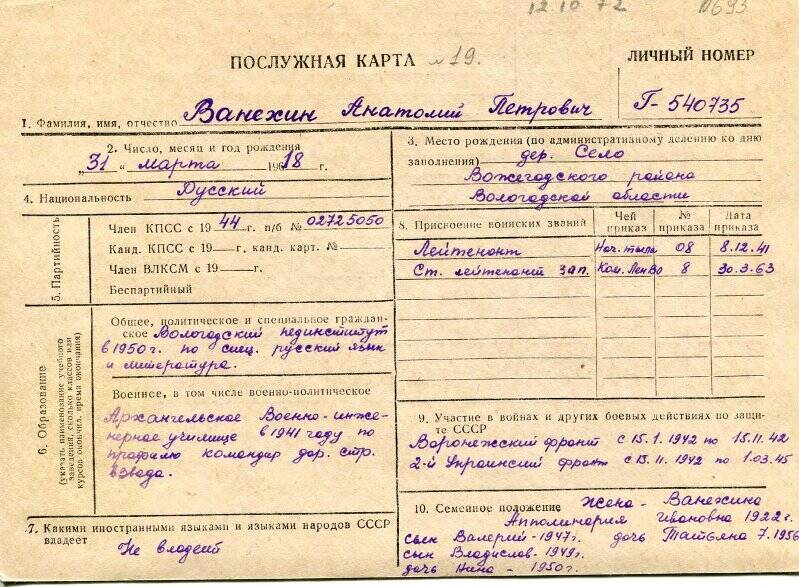 12.10.72 №693
ПОСЛУЖНАЯ КАРТА №19.
ЛИЧНЫЙ НОМЕР
1. Фамилия, имя, отчество Ванехин Анатолий Петрович
Г-540735
2. Число, месяц и год рождения
„31 " марта 1918 г.
3. Место рождения (по административному делению ко дню
заполнения) дер. Село
Вожегодского района
Вологодской области
4. Национальность Русский
5. Партийность
Член КПСС с 1944 г. п/б № 02725050
Канд. КПСС с 19—г. канд. карт. №—
Член ВЛКСМ с 19—г.
Беспартийный
8. Присвоение воинских званий Чей приказ № приказа Дата приказа
Лейтенант Нач. тыла 08 8.12.41
Ст. лейтенант зап. Ком. ЛенВо 8 30.3.63
6. Образование
(указать наименование учебного
заведений, сколько классов или
курсов окончил, время окончания)
Общее, политическое и специальное граждан-
ское Вологодский пединститут
в 1950 г. по спец. русский язык
и литература.
Военное, в том числе военно-политическое
Архангельское Военно-инже-
нерное училище в 1941 году по
профилю командир дор. стр.
взвода.
9. Участие в войнах и других боевых действиях по защи-
те СССР
Воронежский фронт с 15.1.1942 по 15.11.42
2-й Украинский фронт с 15.11.1942 по 1.03.45
7. Какими иностранными языками и языками народов СССР
владеет
Не владеет
10. Семейное положение жена - Ванехина
Апполинария Ивановна 1922 г.
сын Валерий-1947г. дочь Татьяна 7.1956
сын Владислав-1949г.
дочь Нина - 1950г.